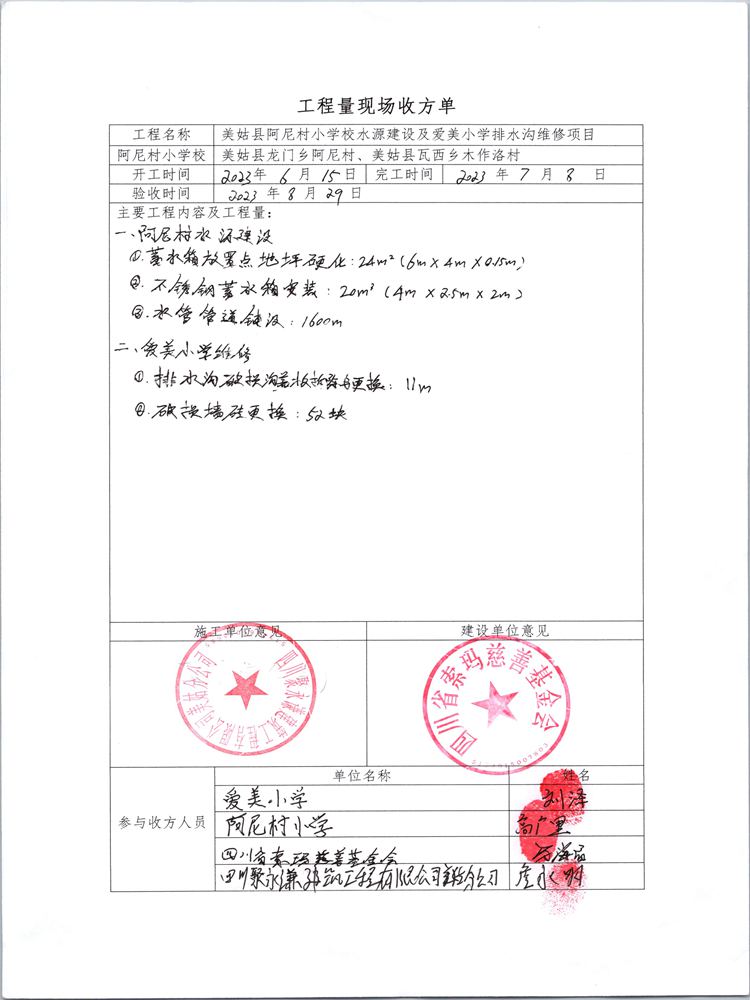 工程量现场收方单
工程名称 美姑县阿尼村小学校水源建设及爱美小学排水沟维修项目
阿尼村小学校 美姑县龙门乡阿尼村、美姑县瓦西乡木作洛村
开工时间 2023年 6 月 15 日 完工时间 2023 年 7 月 8 日
验收时间 2023 年 8 月 29 日
主要工程内容及工程量：
一、阿尼村水源建设
①.蓄水箱放置点地坪硬化：24m²（6m×4m×0.15m）
②.不锈钢蓄水箱安装：20m³（4m×2.5m×2m）
③.水管管道铺设：1600m
二、爱美小学维修
①.排水沟破损沟盖 更换：11m
②.破损墙砖更换：52块
施工单位意见 建设单位意见
四川聚永谦建筑工程有限公司美姑分公司
四川省索玛慈善基金会
参与收方人员 单位名称 姓名
爱美小学 刘泽
阿尼村小学
四川省索玛慈善基金会
四川聚永谦建筑工程有限公司美姑分公司